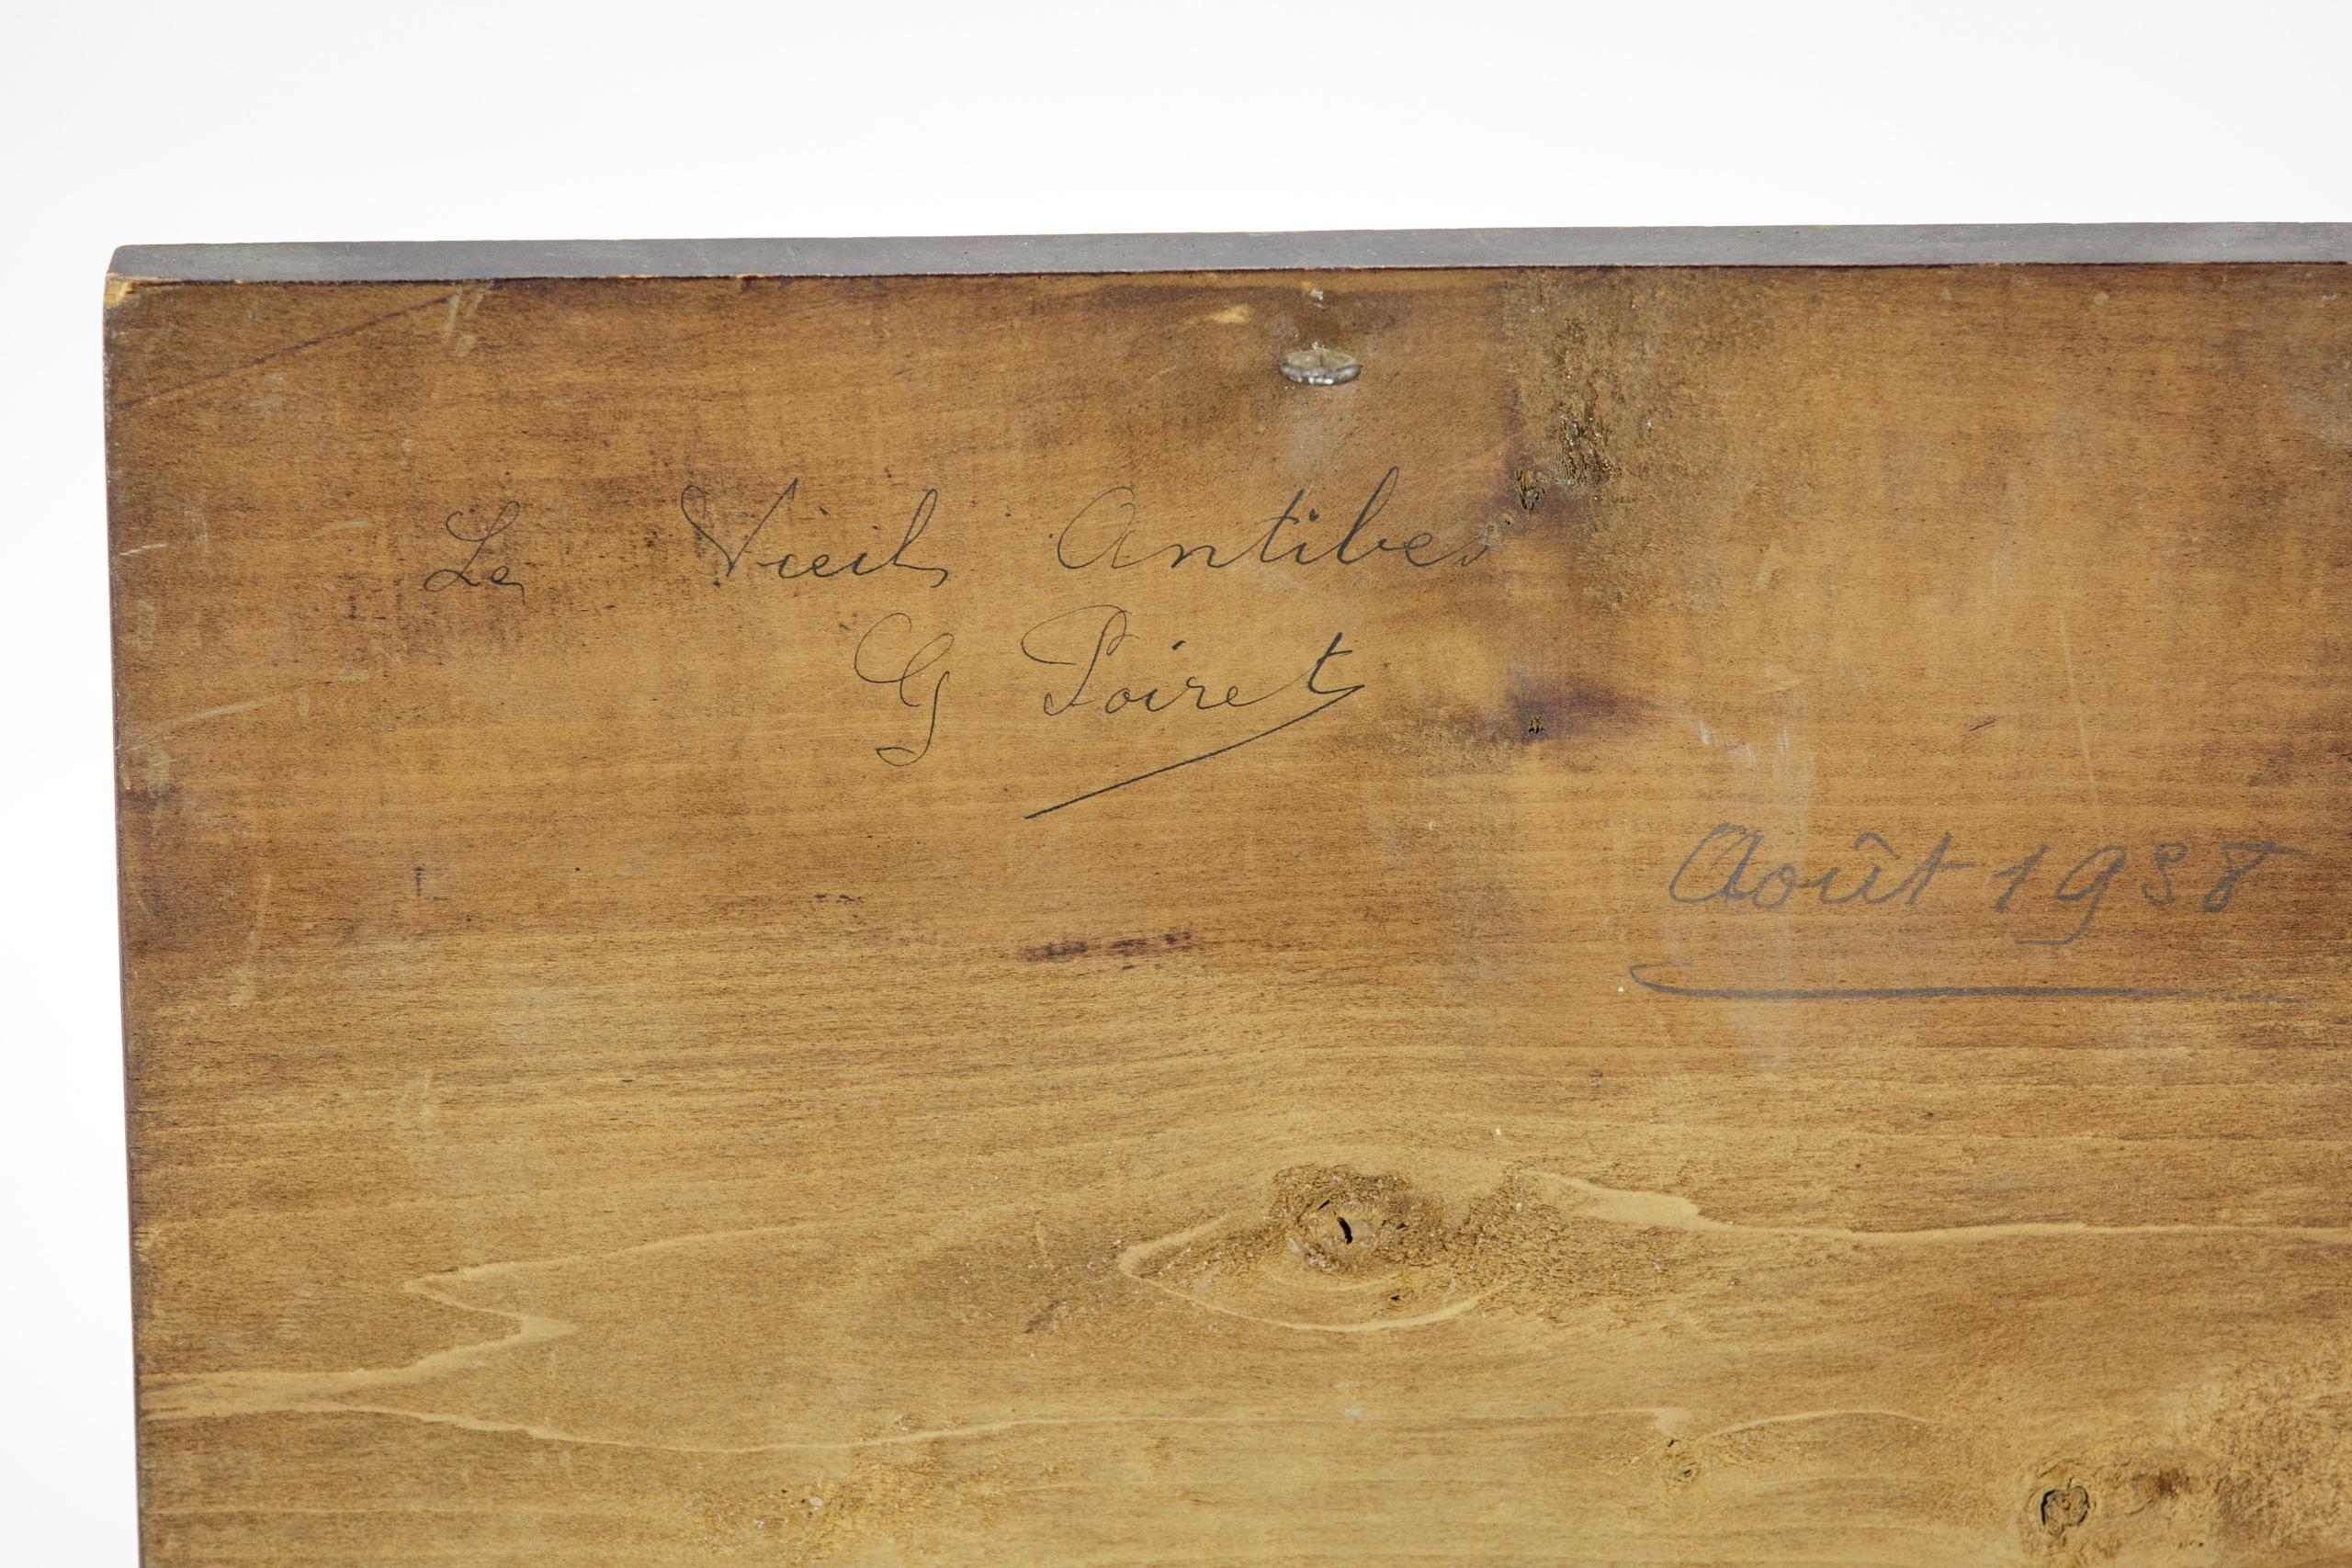 Le Vieil Antibes
G Poiret
Août 1938